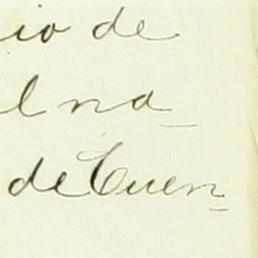 io de
l na
de Cuen